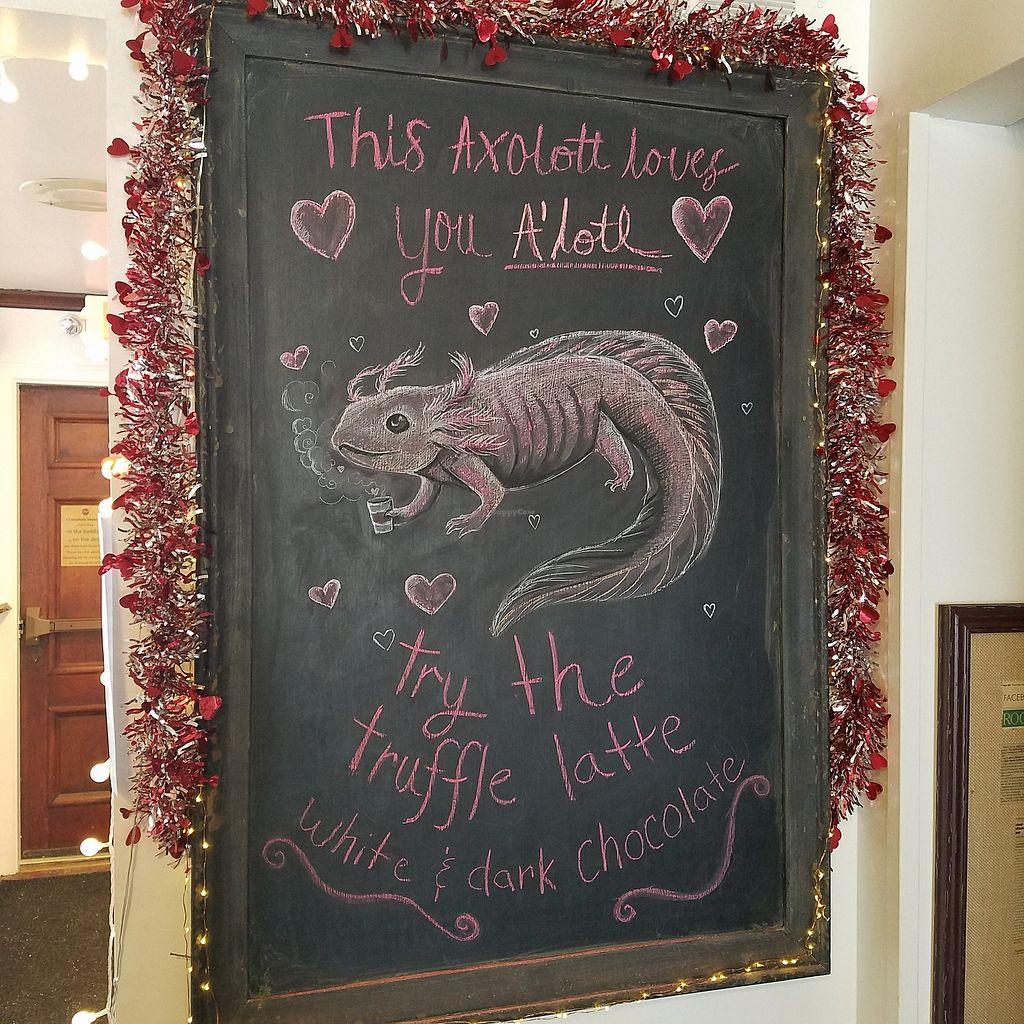 This Axolotl loves
you A'lotl
try the
truffle latte
white & dark Chocolate
in the building
FACEB
ROC